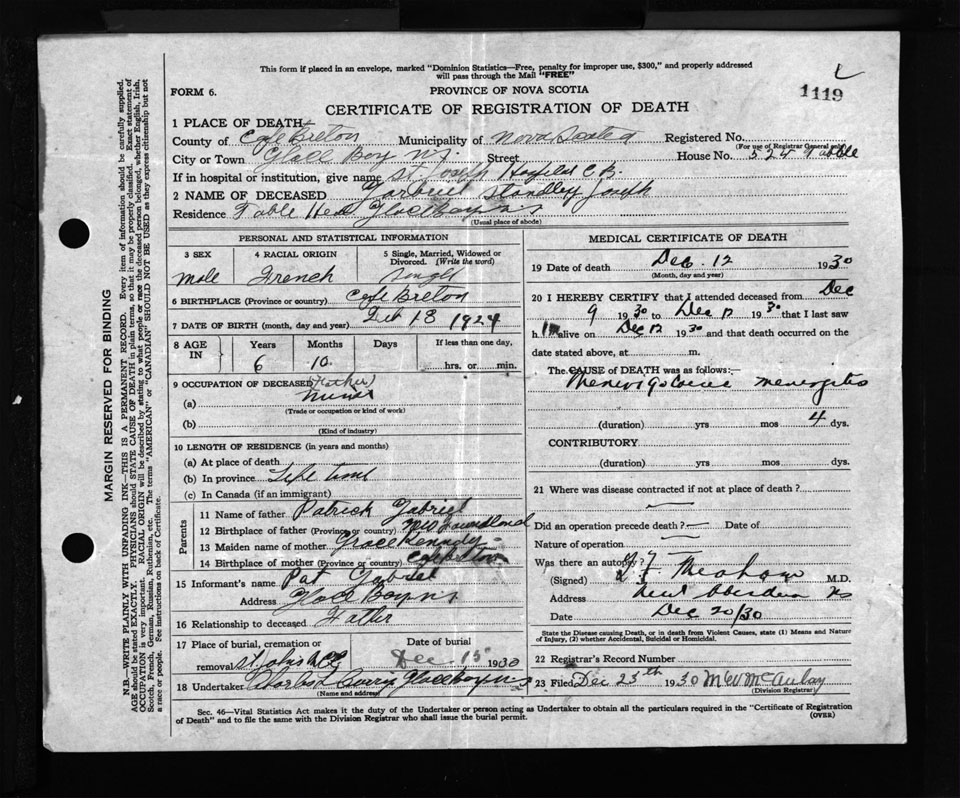 This form if placed in an envelope, marked "Dominion Statistics—Free, penalty for improper use, $300," and properly addressed
will pass through the Mail "FREE"
FORM 6.
PROVINCE OF NOVA SCOTIA
1119
CERTIFICATE OF REGISTRATION OF DEATH
1 PLACE OF DEATH
County of Cape Breton Municipality of Nova Scotia Registered No.
(For use of Registrar General only)
City or Town Glace Bay N.S. Street House No. 524 Table
If in hospital or institution, give name St. Joseph Hospital C.B.
2 NAME OF DECEASED Gabriel Standley Joseph
Residence Table Head Glace Bay N.S
(Usual place of abode)
PERSONAL AND STATISTICAL INFORMATION
3 SEX
4 RACIAL ORIGIN
5 Single, Married, Widowed or
Divorced. (Write the word)
Male French Single
6 BIRTHPLACE (Province or country) Cape Breton
7 DATE OF BIRTH (month, day and year) Feb 18 1924
8 AGE IN
Years Months Days If less than one day,
6 10 hrs. or min.
9 OCCUPATION OF DECEASED (Father)
(a) Miner
(Trade or occupation or kind of work)
(b)
(Kind of industry)
10 LENGTH OF RESIDENCE (in years and months)
(a) At place of death
(b) In province Life time
(c) In Canada (if an immigrant)
Parents
11 Name of father Patrick Gabriel
12 Birthplace of father (Province or country) New Foundland
13 Maiden name of mother Grace Kennedy
14 Birthplace of mother (Province or country) Cape Breton
15 Informant's name Pat Gabriel
Address Glace Bay N.S
16 Relationship to deceased Father
17 Place of burial, cremation or
removal St Johns
Date of burial
Dec. 15 1930
18 Undertaker Curry Glace Bay N.S
(Name and address)
MEDICAL CERTIFICATE OF DEATH
19 Date of death Dec. 12 1930
(Month, day and year)
20 I HEREBY CERTIFY that I attended deceased from Dec
9 1930 to Dec 12 1930 that I last saw
him alive on Dec 12 1930 and that death occurred on the
date stated above, at m.
The CAUSE of DEATH was as follows:—
Meningococcic meningitis
(duration) yrs mos 4 dys.
CONTRIBUTORY
(duration) yrs. mos. dys.
21 Where was disease contracted if not at place of death?
Did an operation precede death? — Date of
Nature of operation
Was there an autopsy?
(Signed) M.D.
Address New Aberdeen NS
Date Dec 20/30
State the Disease causing Death, or in death from Violent Causes, state (1) Means and Nature
of Injury, (2) whether Accidental, Suicidal or Homicidal.
22 Registrar's Record Number
23 Filed Dec 25th 1930 M W McAulay
(Division Registrar)
Sec. 46—Vital Statistics Act makes it the duty of the Undertaker or person acting as Undertaker to obtain all the particulars required in the "Certificate of Registration
of Death" and to file the same with the Division Registrar who shall issue the burial permit.
(OVER)
MARGIN RESERVED FOR BINDING
N.B.—WRITE PLAINLY WITH UNFADING INK—THIS IS A PERMANENT RECORD. Every item of information should be carefully supplied.
AGE should be stated EXACTLY. PHYSICIANS should STATE CAUSE OF DEATH in plain terms, so that it may be properly classified. Exact statement of
OCCUPATION is very important. RACIAL ORIGIN will be described by stating to what people or race the deceased person belonged, whether English, Irish,
Scotch, French, German, Russian, Ruthenian, etc. The terms "AMERICAN" or "CANADIAN" SHOULD NOT BE USED as they express citizenship but not
a race or people. See instructions on back of Certificate.